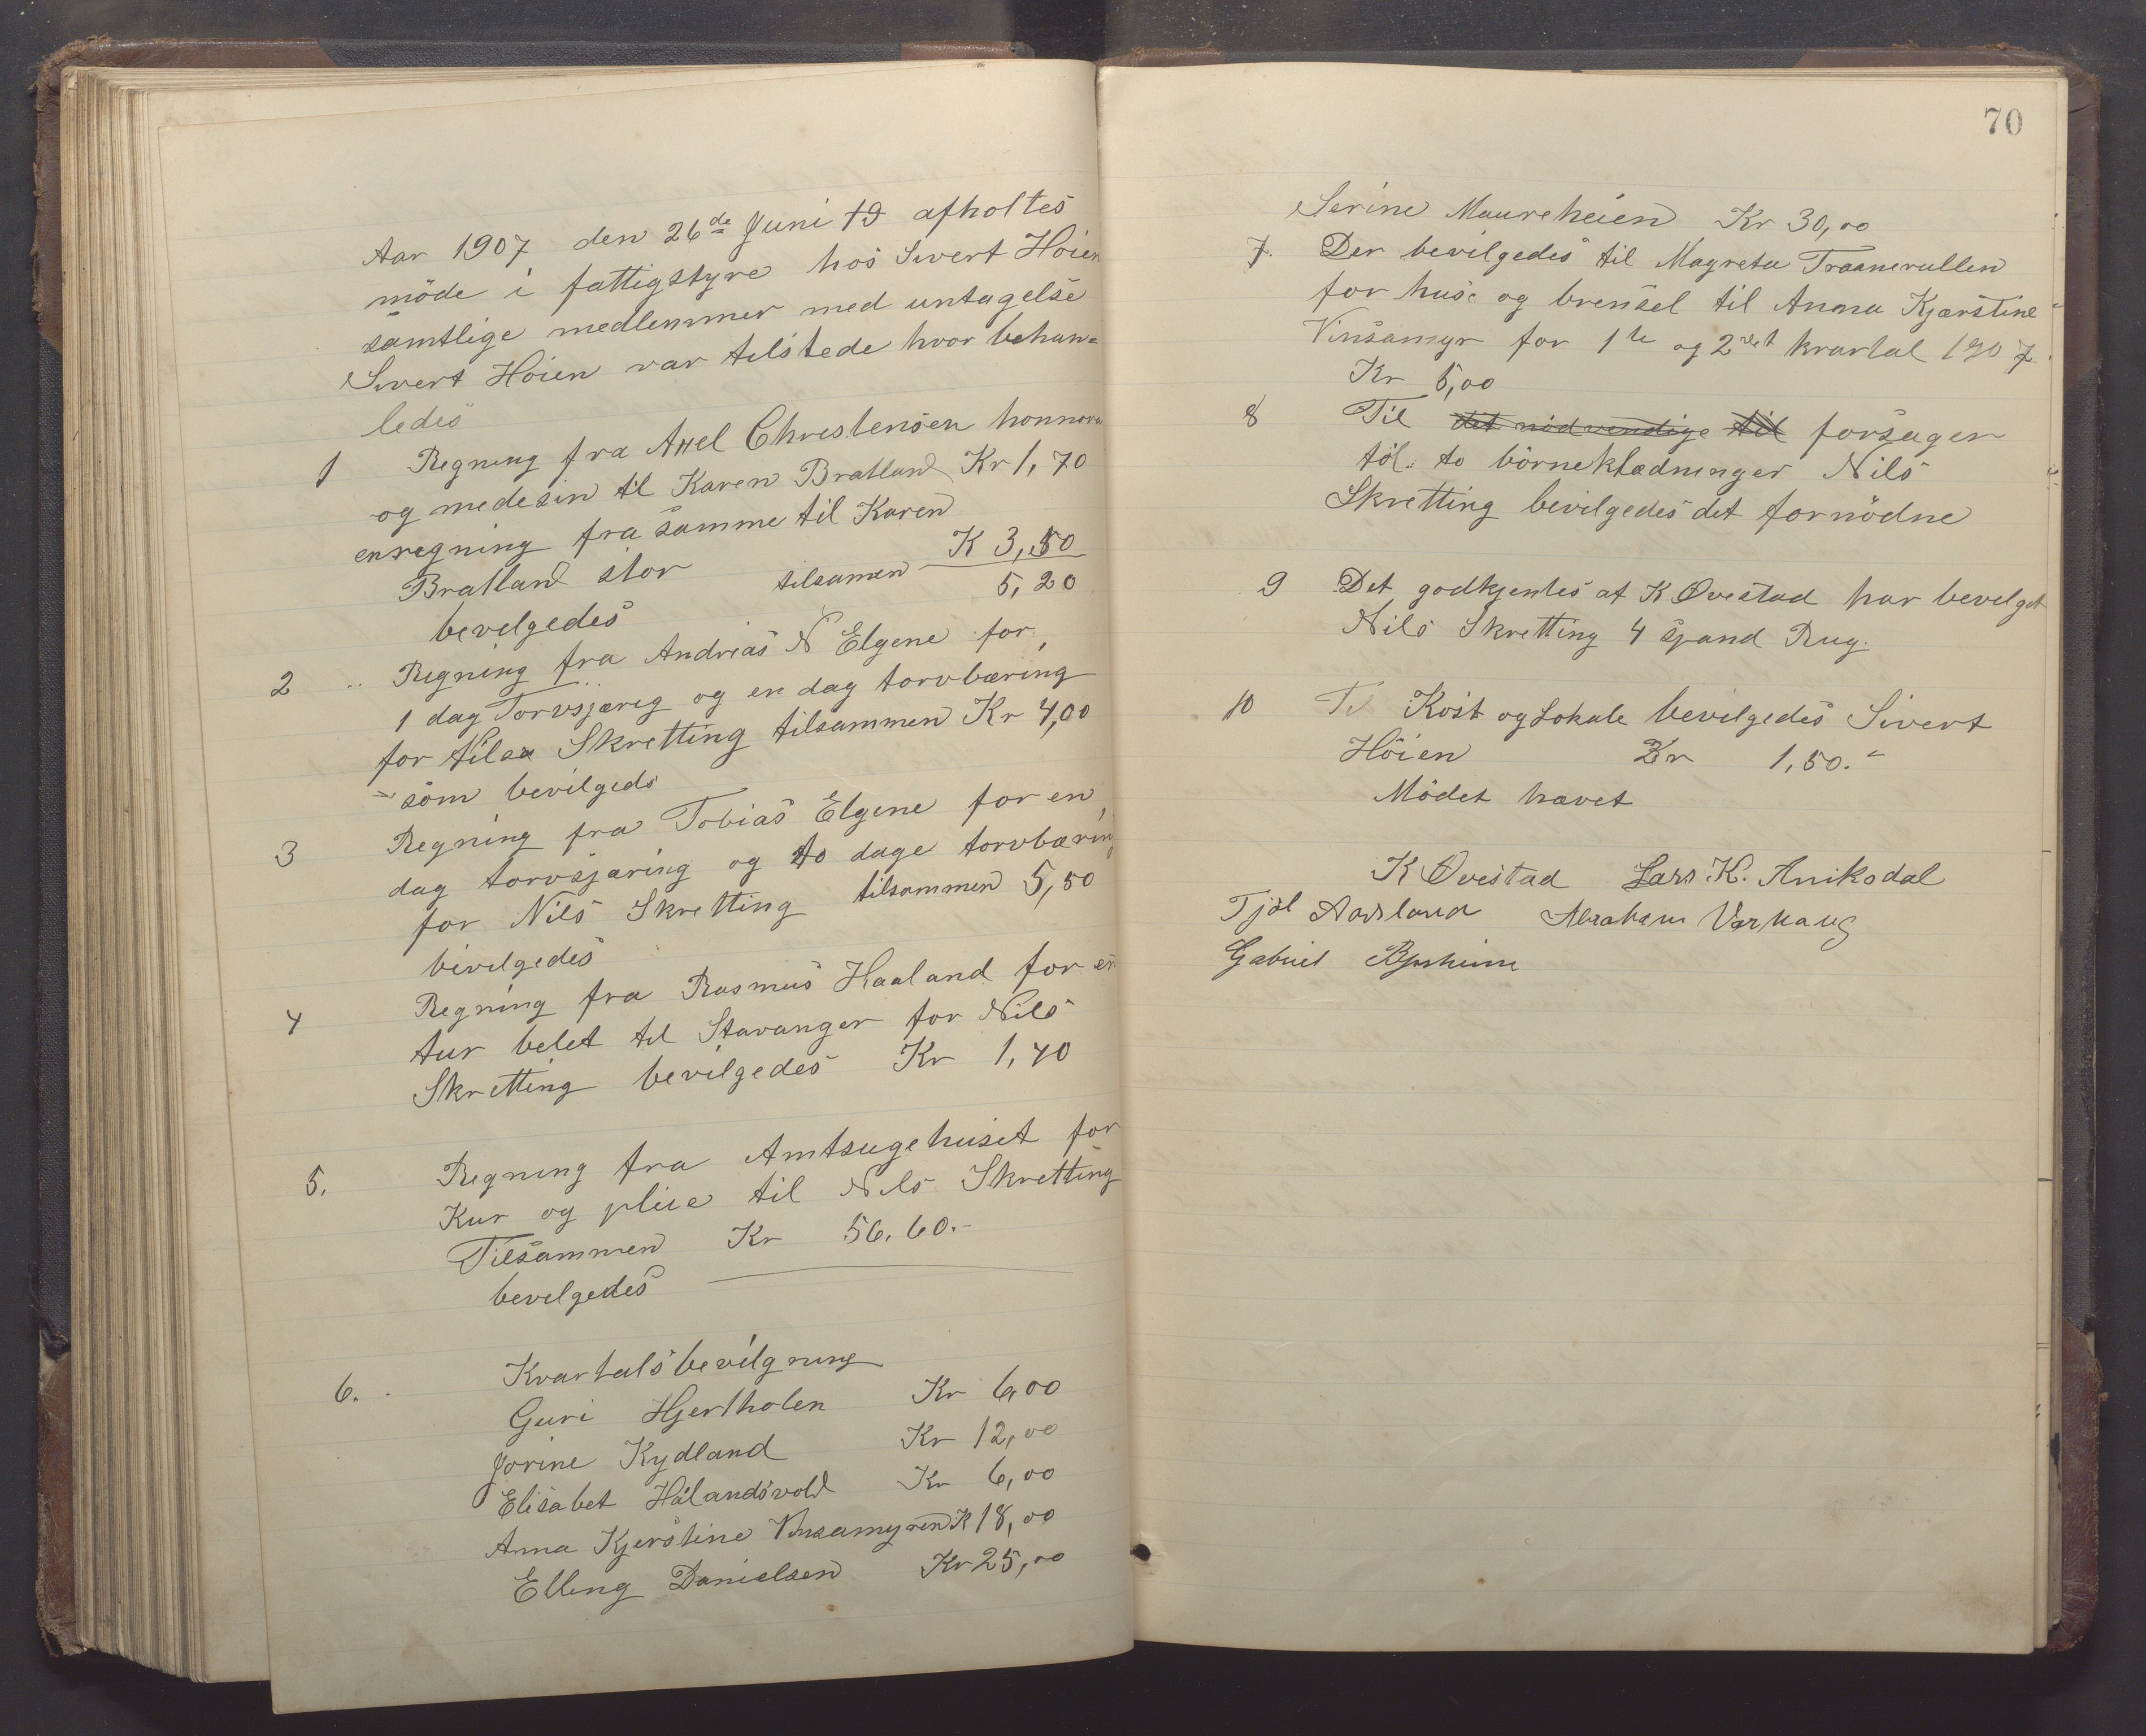 Aar 1907 den 26de Juni td afholtes
möde i fattigstyre hos Sivert Höien
samtlige medlemmer med untagelse
Sivert Höien var tilstede hvor behan=
ledes
1 Regning fra Axel Christensen honnora
og medesin til Karen Bratland Kr 1,70
en regning fra samme til Karen
Bratland stor K 3,50
tilsamen 5,20
bevelgedes
2 Regning fra Andreas N Elgene for
1 dag Torvsjærig og en dag torvbæring
for Nils Skretting tilsammen Kr 4,00
som bevilgeds
3 Regning fra Tobias Elgene for en
dag torvsjæring og to dage torvbæring
for Nils Skretting tilsammen 5,50
bevilgedes
4 Regning fra Rasmus Haaland for en
tur belet til Stavanger for Nils
Skretting bevilgedes Kr 1,40
5. Regning fra Amtsugehuset for
Kur og pleie til Nils Skretting
Tilsammen Kr 56.60.-
bevelgedes
6. Kvartalsbevilgning
Guri Hjertholen Kr 6,00
Jorine Kydland Kr 12,00
Elisabet Hålandsvold Kr 6,00
Anna Kjerstine Vinsamyren K 18,00
Elling Danielsen Kr 25,00
70
Serine Maureheien Kr 30,00
7. Der bevilgedes til Magreta Traanerullen
for huse og brensel til Anna Kjærstine
Vinsamyr for 1te og 2det kvartal 1907.
Kr 5,00
8 Til det nödvendige til forsager
töi to börneklædninger Nils
Skretting bevilgedes det fornödne
9 Det godkjentes at K Ovestad har bevelget
Nils Skretting 4 spand Rug.
10 Til Kost og Lokale bevilgedes Sivert
Höien Kr 1,50.-
Mödet hævet
K Ovestad Lars K. Aniksdal
Tjöl Aarsland Abraham Varhaug
Gabriel